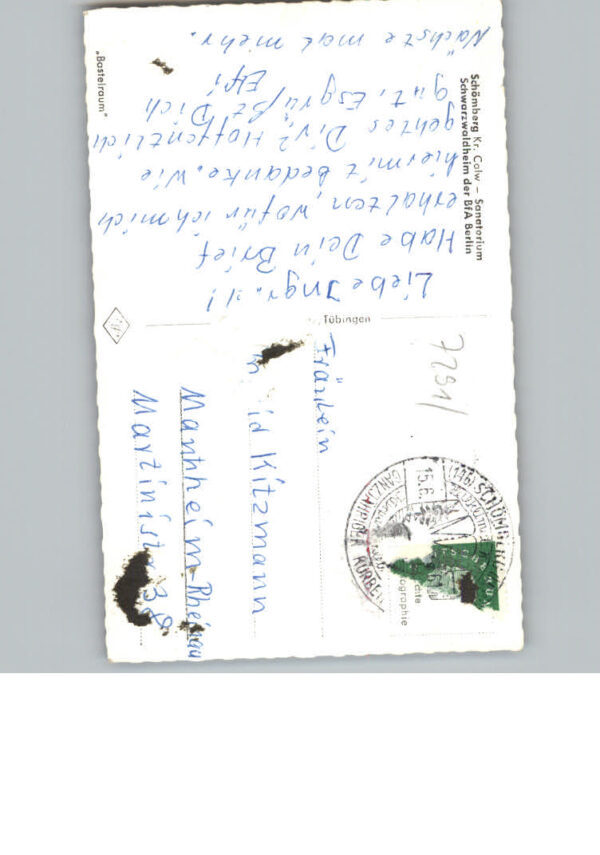 Schömberg Kr. Calw – Sanatorium
Schwarzwaldheim der BfA Berlin
Liebe
Habe Dein Brief
erhalten, wofür ich mich
hiermit bedanke. Wie
geht es Dir? Hoffentlich
gut. Es grüßt Dich
Elfi
Nächste mal mehr.
„Bastelraum"
Tübingen
7291/
(14b) SCHÖMBERG
15.6.
GANZJÄHRIGER KURBE
Fräulein
Kitzmann
Mannheim-Rheinau
Martinistr 38